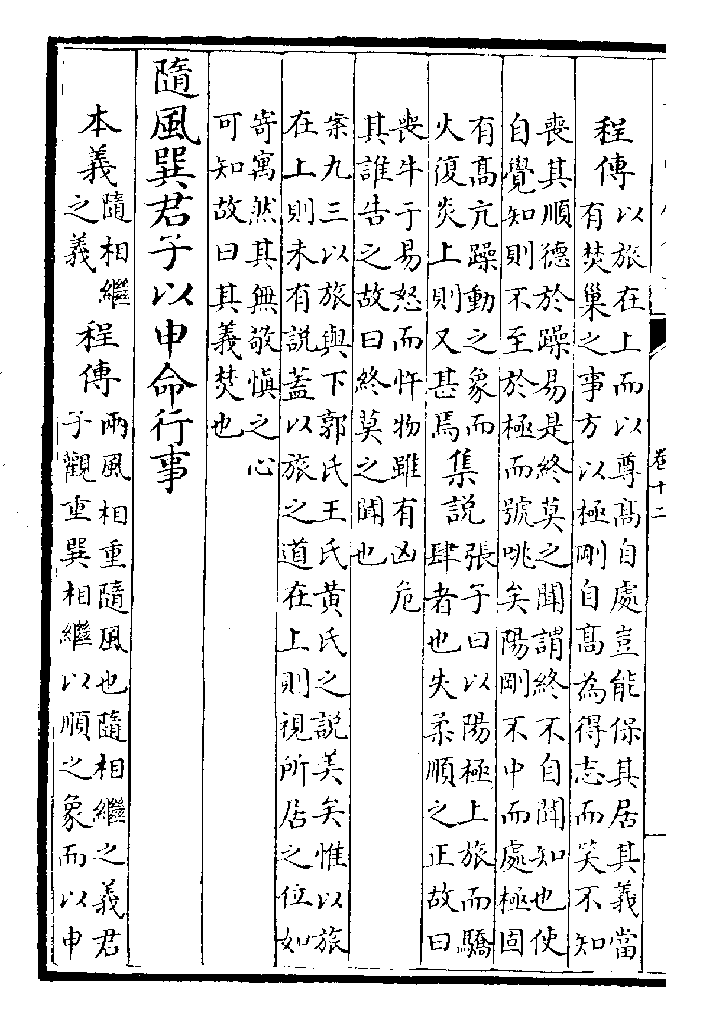 卷十二
程傳以旅在上而以尊髙自處豈能保其居其義當
有焚巢之事方以極剛自髙為得志而笑不知
喪其順德於躁易是終莫之聞謂終不自聞知也使
自覺知則不至於極而號咷矣陽剛不中而處極固
有髙亢躁動之象而
火復炎上則又甚焉
集説張子曰以陽極上旅而驕
肆者也失柔順之正故曰
喪牛于易怒而忤物雖有凶危
其誰告之故曰終莫之聞也
案九三以旅與下郭氏王氏黄氏之説美矣惟以旅
在上則未有説蓋以旅之道在上則視所居之位如
寄寓然其無敬慎之心
可知故曰其義焚也
隨風巽君子以申命行事
本義隨相繼
之義
程傳兩風相重隨風也隨相繼之義君
子觀重巽相繼以順之象而以申